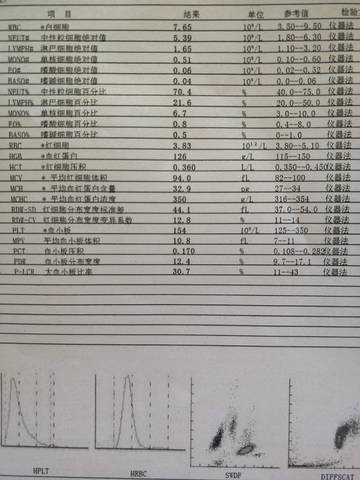 项 目 结果 单位 参考值 检验
WBC *白细胞 7.65 10⁹/L 3.50--9.50 仪器法
NEUT# 中性粒细胞绝对值 5.39 10⁹/L 1.80--6.30 仪器法
LYMPH# 淋巴细胞绝对值 1.65 10⁹/L 1.10--3.20 仪器法
MONO# 单核细胞绝对值 0.51 10⁹/L 0.10--0.60 仪器法
EO# 嗜酸细胞绝对值 0.06 10⁹/L 0.02--0.52 仪器法
BASO# 嗜碱细胞绝对值 0.04 10⁹/L 0.0--0.06 仪器法
NEUT% 中性粒细胞百分比 70.4 % 40.0--75.0 仪器法
LYMPH% 淋巴细胞百分比 21.6 % 20.0--50.0 仪器法
MONO% 单核细胞百分比 6.7 % 3.0--10.0 仪器法
EO% 嗜酸细胞百分比 0.8 % 0.4--8.0 仪器法
BASO% 嗜碱细胞百分比 0.5 % 0--1.0 仪器法
RBC *红细胞 3.83 10¹²/L 3.80--5.10 仪器法
HGB *血红蛋白 126 g/L 115--150 仪器法
HCT *红细胞压积 0.360 L/L 0.350--0.450 仪器法
MCV *平均红细胞体积 94.0 fL 82--100 仪器法
MCH *平均血红蛋白含量 32.9 pg 27--34 仪器法
MCHC *平均血红蛋白浓度 350 g/L 316--354 仪器法
RDW-SD 红细胞分布宽度标准差 44.1 fL 37.0--54.0 仪器法
RDW-CV 红细胞分布宽度变异系数 12.8 % 11--14 仪器法
PLT *血小板 154 10⁹/L 125--350 仪器法
MPV 平均血小板体积 10.8 fL 7--11 仪器法
PCT 血小板压积 0.170 % 0.108--0.282 仪器法
PDW 血小板分布宽度 12.4 % 9.7--17.1 仪器法
P-LCR 大血小板比率 30.7 % 11--43 仪器法
HPLT HRBC SWDF DIFFSCAT